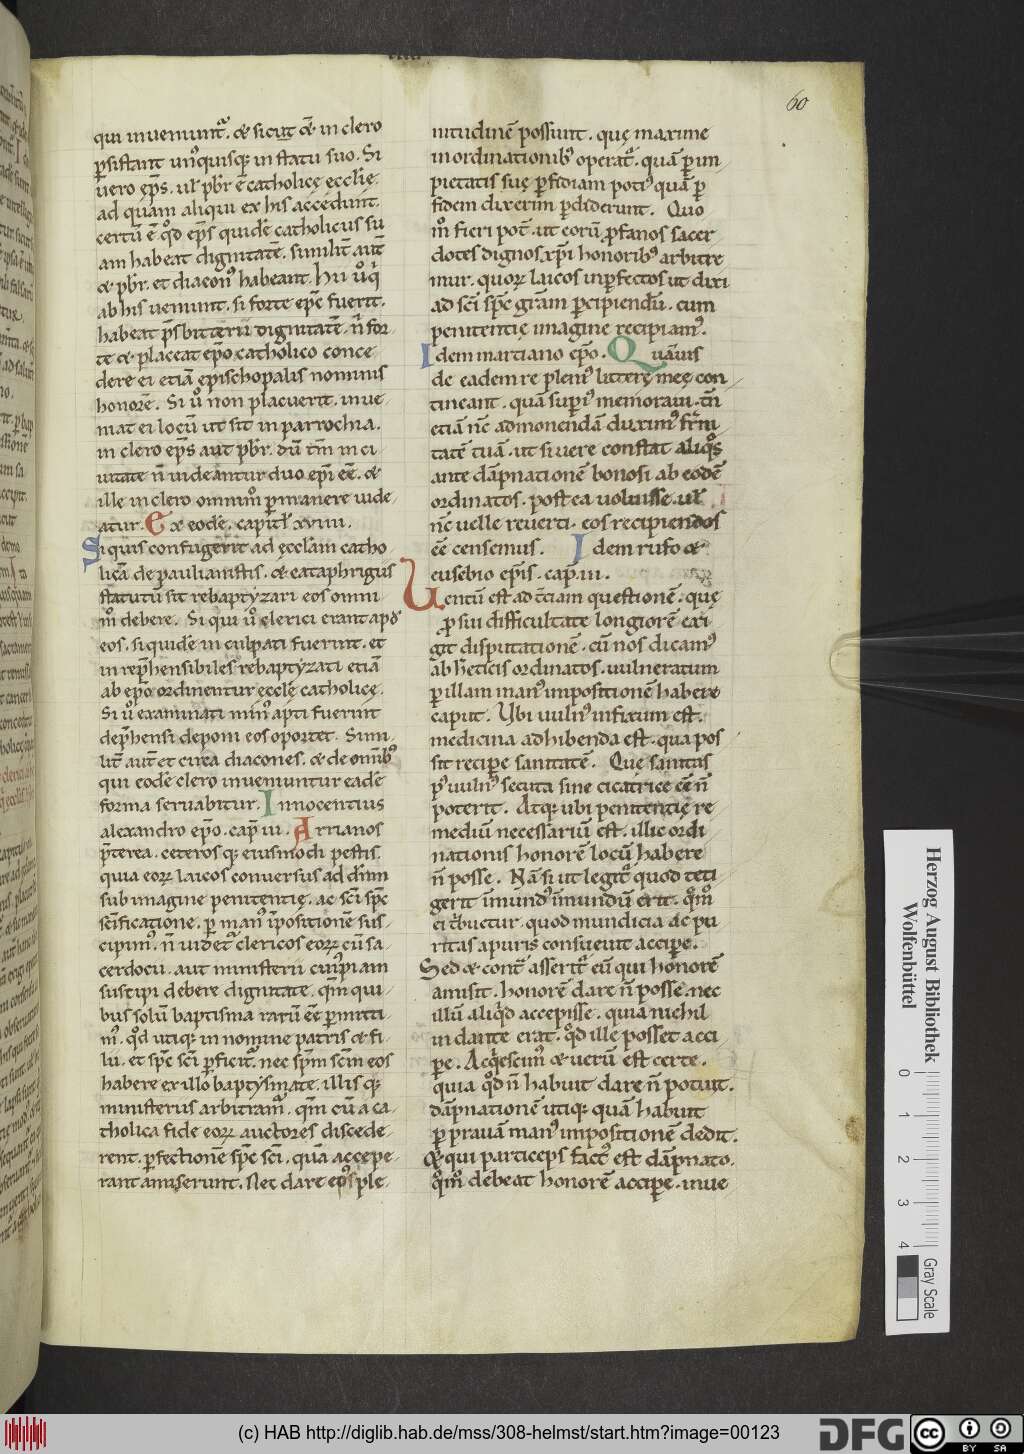 60
qui inueniunt᷑. & sicut ē in clero
ꝑsistant un᷒quisq; in statu suo. Si
uero ep̄s. ul̄ pb̄r ē catholicę ecclię.
ad quam aliqui ex his accedunt.
certū ē q̊d ep̄s quidē catholicus su
am habeat dignitatē. similit̄ aut̄
& pb̄r. et diacon᷒ habeant. Hii u̓ q̓
ab his ueniunt. si forte ep̄c fuerit.
habeat p̄sbiterii dignitatē. n̄ for
te & placeat ep̄o catholico conce
dere ei etiā epischopalis nominis
honorē. Si u̓ non placuerit. inue
niat ei locū ut sit in parrochia.
in clero ep̄s aut pb̄r. dū tm̄ in ci
uitate n̄ uideantur duo ep̄i ēē. &
ille in clero omnim̊ ꝑmanere uide
atur. Ex eodē. capitl̄ xviiii.
Si quis confugerit ad ęcclam catho
licā de paulianistis. & cataphrigus
statutū sit rebaptyzari eos omni
m̊ debere. Si qui u̓ clerici erant apd̓
eos. si quidē in culpati fuerint. et
inrep̄hensibiles rebaptyzati etiā
ab ep̄o ordinentur ecclę catholicę.
Si u̓ examinati min᷒ apti fuerint
dep̄hensi deponi eos oportet. Simi
lit̄ aut̄ et circa diacones. & de omīb᷒
qui eodē clero inueniuntur eadē
forma seruabitur. Innocentius
alexandro ep̄o. cap̄ iii. Arrianos
p̄terea. ceteros q; eiusmodi pestis.
quia eoꝝ laicos conuersus ad dn̄m
sub imagine penitentię. ac sc̄i sp̄c
sc̄ificatione. ꝑ man᷒ īpositionē sus
cipim᷒. n̄ uidet᷑ clericos eoꝝ cū sa
cerdocii. aut ministerii cui᷒piam
suscipi debere dignitate. qm̄ qui
bus solū baptisma ratū ēē ꝑmitti
m᷒. q̊d utiq; in nomine patris & fi
lii. et sp̄c sc̄i ꝑficit᷑. nec sp̄m sc̄m eos
habere ex illo baptysmate. illis q;
ministeriis arbitram᷑. qm̄ cū a ca
tholica fide eoꝝ auctores discede
rent. ꝑfectionē sp̄c sc̄i. quā accepe
rant amiserunt. Nec dare ei᷒ ple
nitudinē possunt. quę maxime
in ordinationib᷒ operat᷑. quā ꝑ im
pietatis suę ꝑfidiam poti᷒ quā ꝑ
fidem dixerim ꝑdiderunt. Quo
m̊ fieri pot̄. ut eorū ꝓfanos sacer
dotes dignos xp̄i honorib᷒ arbitre
mur. quoꝝ laicos inperfectos ut dixi
ad sc̄i sp̄c gr̄am ꝑcipiendū. cum
penitentię imagine recipiam᷒.
Idem martiano ep̄o. Quāuis
de eadem re pleni᷒ litterę meę con
tineant. quā superi᷒ memoraui. tn̄
etiā nc̄ admonendā duxim᷒ fr̄ni
tatē tuā. ut si uere constat aliq̊s
ante dāpnationē bonosi ab eodē
ordinatos. postea uoluisse. ul̄
nc̄ uelle reuerti. eos recipiendos
ēē censemus. Idem rufo &
eusebio ep̄is. cap̄ iii.
Uentū est ad tc̄iam questionē. quę
ꝓ sui difficultate longiorē exi
git disputationē. cū nos dicam᷒
ab h̄eticis ordinatos. uulneratum
ꝑ illam man᷒ impositionē habere
caput. Ubi uuln᷒ infixum est.
medicina adhibenda est. qua pos
sit recipe sanitatē. Que sanitas
p᷒ uuln᷒ secuta sine cicatrice ēē n̄
poterit. Atq; ubi penitentię re
mediū necessariū est. illic ordi
nationis honorē locū habere
n̄ posse. Nā si ut legit᷑ quod teti
gerit īmund᷒ īmundū erit. q̊m̊
ei t̓buetur. quod mundicia ac pu
ritas a puris consueuit accipe.
Sed & cont̄ asserit᷑ eū qui honorē
amisit. honorē dare n̄ posse. nec
illū aliq̓d accepisse. quia nichil
in dante erat. q̊d ille posset acci
pe. Acq̓escim᷒ & uerū est certe.
quia q̊d n̄ habuit dare n̄ potuit.
dāpnationē utiq; quā habuit
ꝑ prauam man᷒ impositionē dedit.
& qui particeps fact᷒ est dāpnato.
q̊m̊ debeat honorē accipe. inue
Herzog August Bibliothek
Wolfenbüttel
0 1 2 3 4
Gray Scale
(c) HAB http://diglib.hab.de/mss/308-helmst/start.htm?image=00123
DFG
cc BY SA